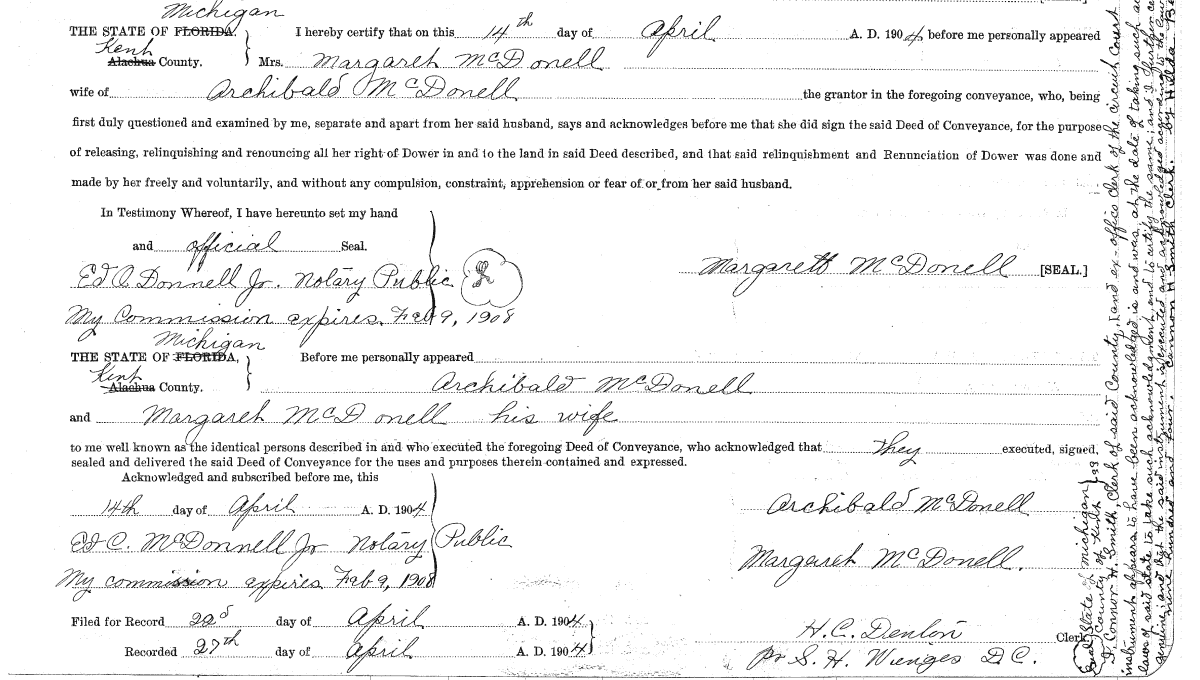 Michigan
THE STATE OF FLORIDA. I hereby certify that on this 14th day of April A. D. 1904 before me personally appeared
Kent
Alachua County. Mrs. Margaret McDonell
wife of Archibald McDonell the grantor in the foregoing conveyance, who, being
first duly questioned and examined by me, separate and apart from her said husband, says and acknowledges before me that she did sign the said Deed of Conveyance, for the purpose
of releasing, relinquishing and renouncing all her right of Dower in and to the land in said Deed described, and that said relinquishment and Renunciation of Dower was done and
made by her freely and voluntarily, and without any compulsion, constraint, apprehension or fear of or from her said husband.
In Testimony Whereof, I have hereunto set my hand
and official Seal.
Margarett McDonell [SEAL.]
Ed C. Donnell Jr. Notary Public
My Commission expires Feb 9, 1908
Michigan
THE STATE OF FLORIDA, Before me personally appeared
Kent
Alachua County. Archibald McDonell
and Margaret McDonell his wife
to me well known as the identical persons described in and who executed the foregoing Deed of Conveyance, who acknowledged that they executed, signed,
sealed and delivered the said Deed of Conveyance for the uses and purposes therein contained and expressed.
Acknowledged and subscribed before me, this
14th day of April A. D. 1904
Archibald McDonell
Ed C. McDonnell Jr Notary Public
Margaret McDonell.
My commission expires Feb 9, 1908
Filed for Record 22d day of April A. D. 1904
H. C. Denton Clerk
Recorded 27th day of April A. D. 1904
pr S. H. Wienges D.C.
State of Michigan
County of Kent } ss
I, Connor H. Smith, Clerk of said County, and ex-officio clerk of the circuit Court
instrument appears to have been acknowledged is and was, at the date of taking such
laws of said state to take such acknowledgment, and to certify the same; and I further
genuine; and that the said instrument is executed and acknowledged according to the
nine hundred and four. Connor H Smith Clerk. by Hilda